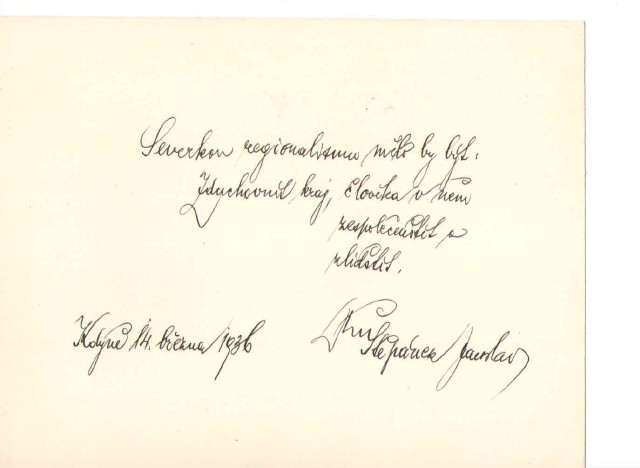 regionalismu mělo by být:
Zduchovnit kraj, člověka v něm
zespolečenštit a
zlidštit.
Kdyně 14. března 1936
Štěpánek Jaroslav